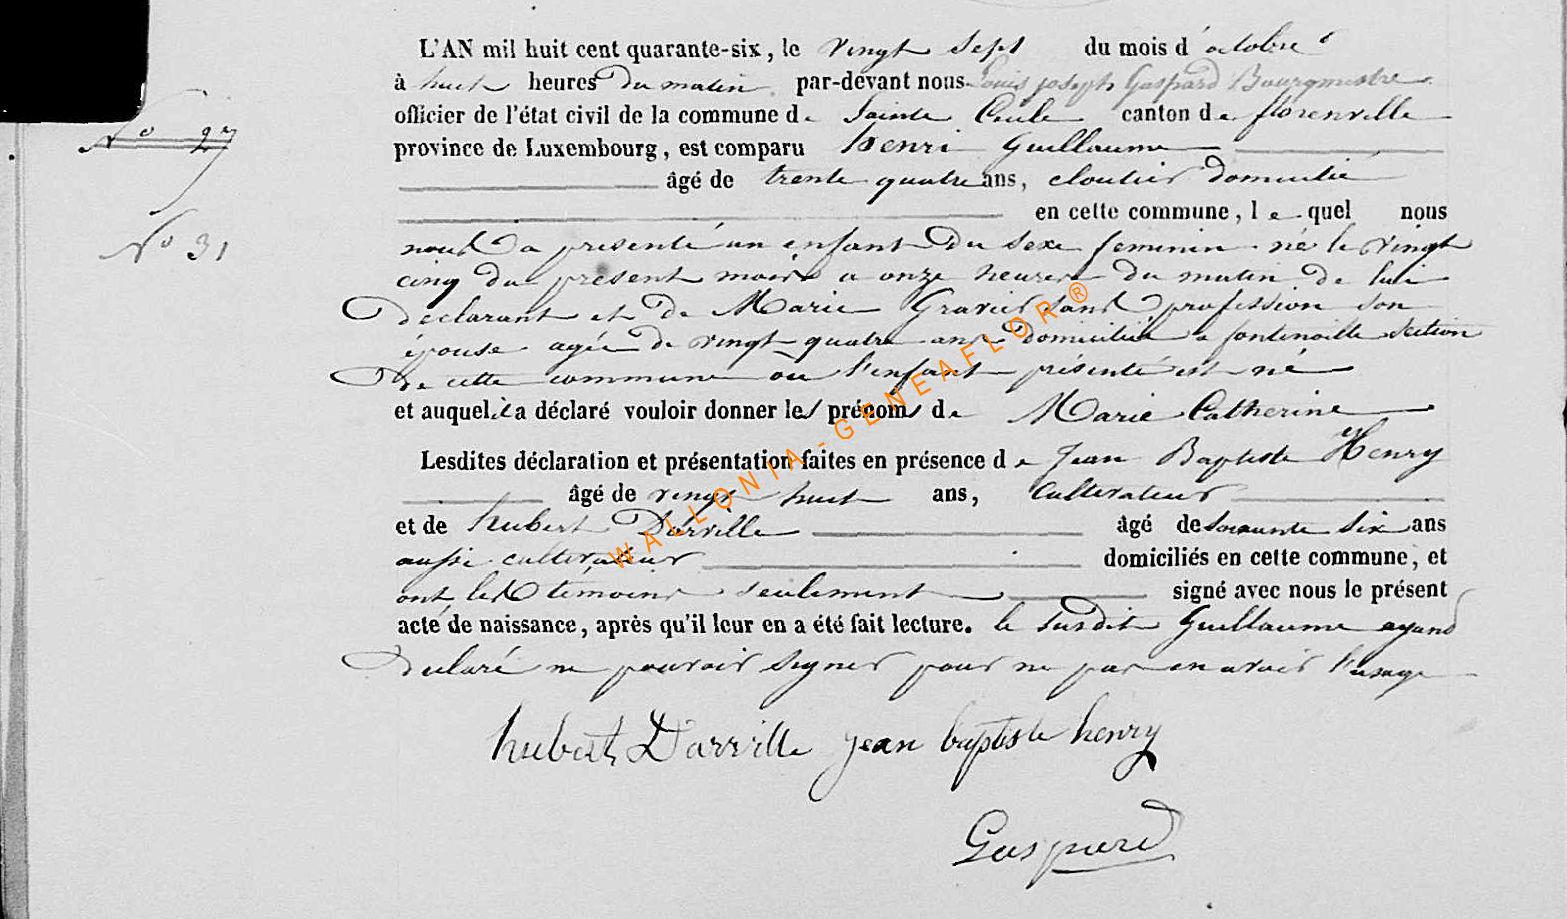 L'AN mil huit cent quarante-six, le vingt sept du mois d'octobre
à huit heures du matin par-devant nous Louis joseph Gaspard Bourgmestre
officier de l'état civil de la commune de Sainte Cécile canton de florenville
N° 27
province de Luxembourg, est comparu henri Guillaume
âgé de trente quatre ans, cloutier domicilié
en cette commune, lequel nous
N° 31
nous a presenté un enfant du sexe feminin né le vingt
cinq du présent mois a onze heures du matin de lui
déclarant et de Marie Gravier sans profession son
épouse agée de vingt quatre ans domiciliée a fontenoille section
de cette commune où l'enfant présenté est né
et auquel il a déclaré vouloir donner les prénoms de Marie Catherine
Lesdites déclaration et présentation faites en présence de Jean Baptiste Henry
âgé de vingt huit ans, cultivateur
et de hubert Darville âgé de soixante six ans
aussi cultivateur domiciliés en cette commune, et
ont les témoins seulement signé avec nous le présent
acte de naissance, après qu'il leur en a été fait lecture. le susdit Guillaume ayant
declaré ne pouvoir signer pour ne pas en avoir l'usage
hubert Darville jean baptiste henry
Gaspard
WALLONIA-GENEAFLOR®